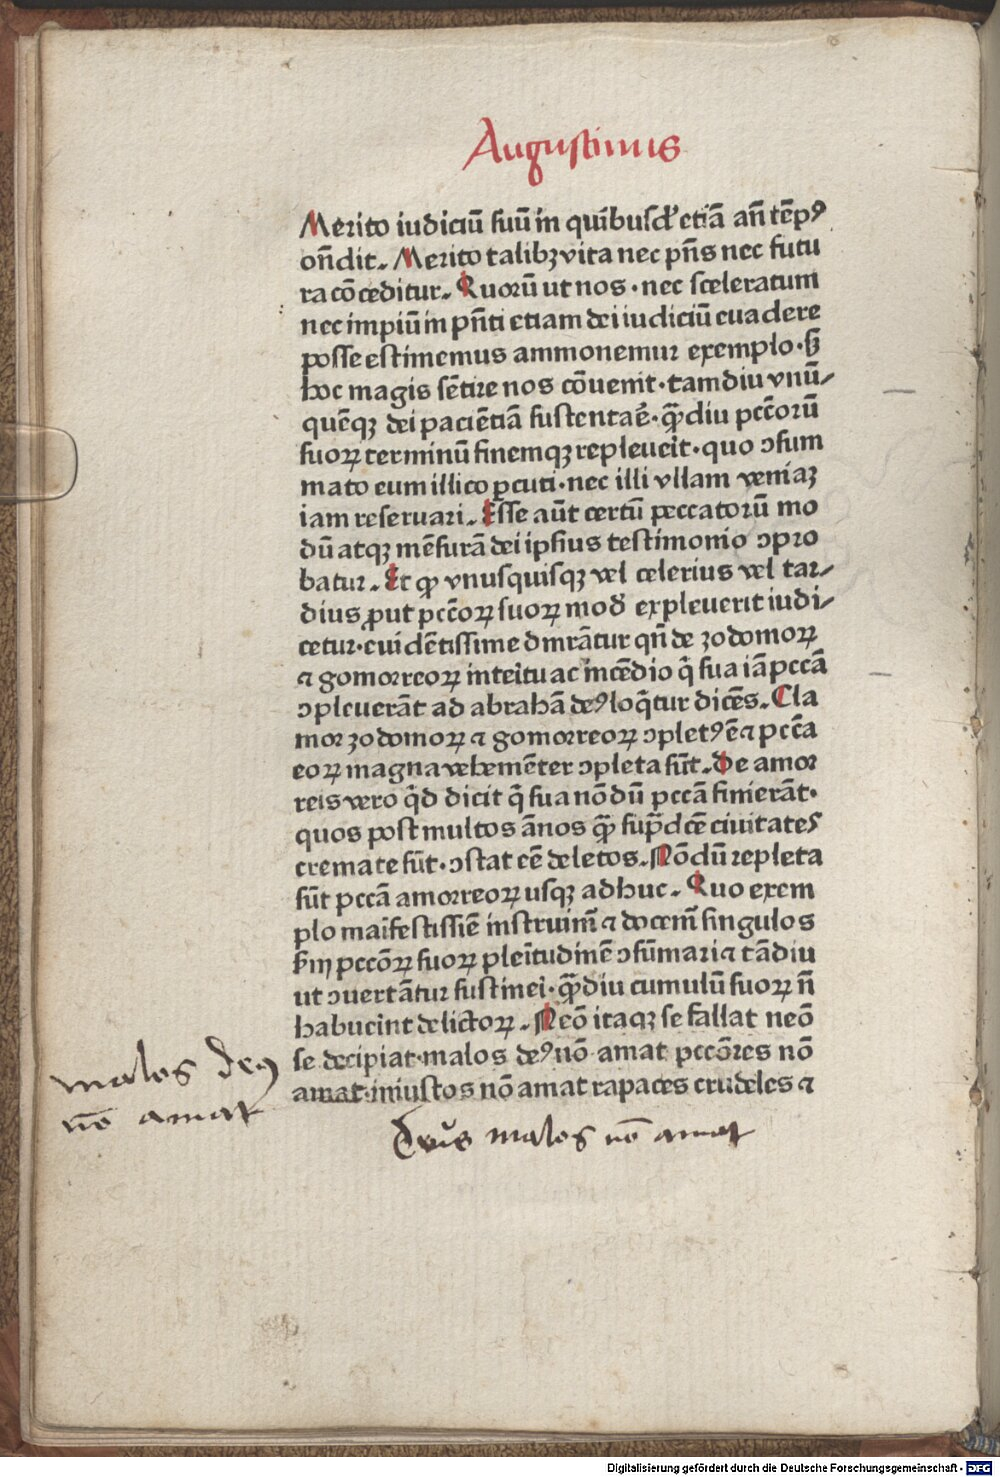 Augustinus
Merito iudiciū suū in quibusdꝫ etiā añ tēpꝰ
oñdit. Merito talibꝫ vita nec pñs nec futu
ra cōceditur. Quorū ut nos · nec sceleratum
nec impiū in pñti etiam dei iudiciū euadere
posse estimemus ammonemur exemplo ·
hoc magis sētire nos cōuenit · tamdiu vnū/
quēqꝫ dei paciētiā sustentaē · qᷓdiu pccōrū
suoꝝ terminū finemqꝫ repleueit · quo ↄsum
mato eum illico ꝑcuti · nec illi vllam veniaꝫ
iam reseruari. Esse aūt certū peccatorū mo
dū atqꝫ mēsurā dei ipsius testimonio ↄpro
batur. Et ꝙ vnusquisqꝫ vel celerius vel tar/
dius ꝓut pccōꝝ suoꝝ mod expleuerit iudi/
cetur · euidētissime dmrātur qñ de zodomoꝝ
⁊ gomorreoꝝ inteītu ac incēdio q̄ sua iā pccā
ↄpleuerāt ad abrahā deꝰ loq̄tur dicēs. Cla
mor zodomoꝝ ⁊ gomorreoꝝ ↄpletꝰ ē ⁊ pccā
eoꝝ magna vehemēter ↄpleta sūt. De amor
reis vero q̄d dicit q̄ sua nōdū pccā finierāt ·
quos post multos ānos qᷓ sup̄dcē ciuitates
cremate sūt · ↄstat eē deletos. Nōdū repleta
sūt pccā amorreoꝝ usqꝫ adhuc. Quo exem
plo maīfestissīē instruim̄ ⁊ docem̄ singulos
pccōꝝ suoꝝ pleītudinē ↄsūmari ⁊ tādiu
ut ↄuertātur sustinei · qᷓdiu cumulū suoꝝ ñ
habueint delictoꝝ. Neō itaqꝫ se fallat neō
se decipiat · malos deꝰ nō amat pccōres nō
amat · iniustos nō amat rapaces crudeles ⁊
malos deꝰ
nō amat
Deus malos nō amat
Digitalisierung gefördert durch die Deutsche Forschungsgemeinschaft - DFG